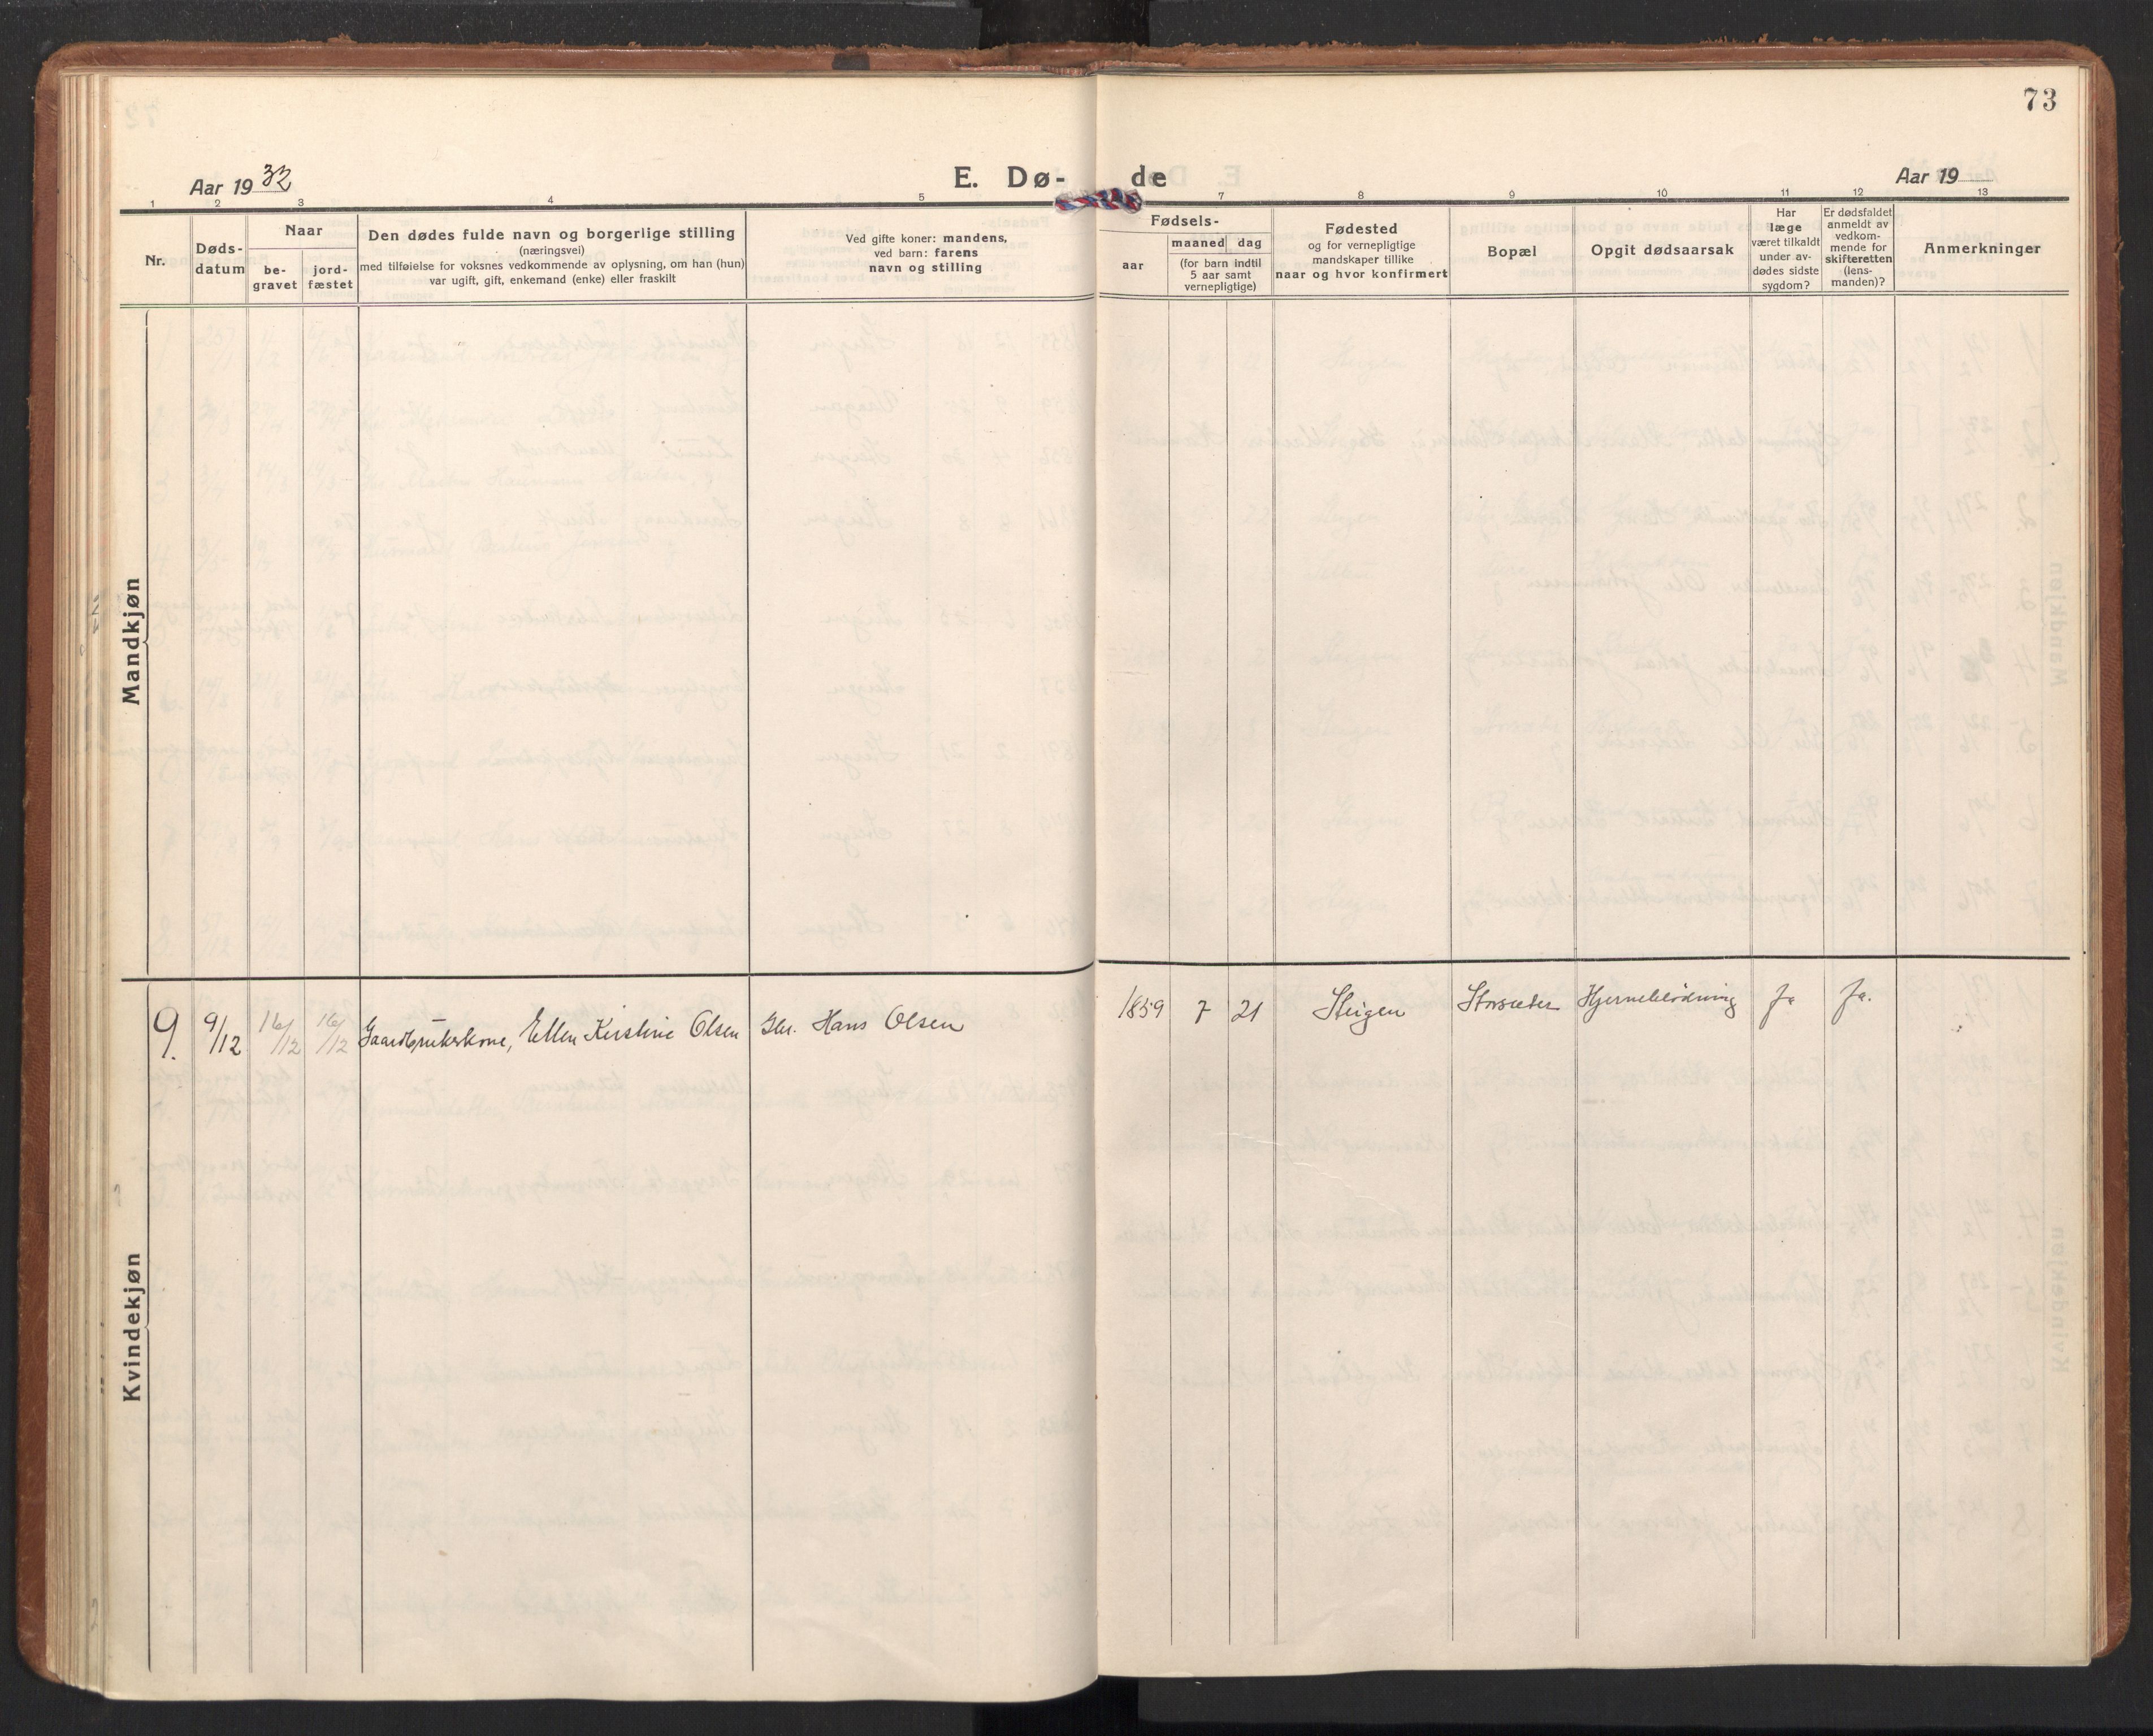 73
Aar 1932
E. Dø- de
Aar 19
1 2 3 4 5 7 8 9 10 11 12 13
Nr.
Døds-
datum
Naar
be-
gravet
jord-
fæstet
Den dødes fulde navn og borgerlige stilling
(næringsvei)
med tilføielse for voksnes vedkommende av oplysning, om han (hun)
var ugift, gift, enkemand (enke) eller fraskilt
Ved gifte koner: mandens,
ved barn: farens
navn og stilling
Fødsels-
aar
maaned dag
(for barn indtil
5 aar samt
vernepligtige)
Fødested
og for vernepligtige
mandskaper tillike
naar og hvor konfirmert
Bopæl
Opgit dødsaarsak
Har
læge
været tilkaldt
under av-
dødes sidste
sygdom?
Er dødsfaldet
anmeldt av
vedkom-
mende for
skifteretten
(lens-
manden)?
Anmerkninger
Mandkjøn
9. 9/12 16/12 16/12 Gaardbrukerkone, Ellen Kirstine Olsen Gbr. Hans Olsen 1859 7 21 Steigen Storsæter Hjerneblödning Ja Ja.
Kvindekjøn